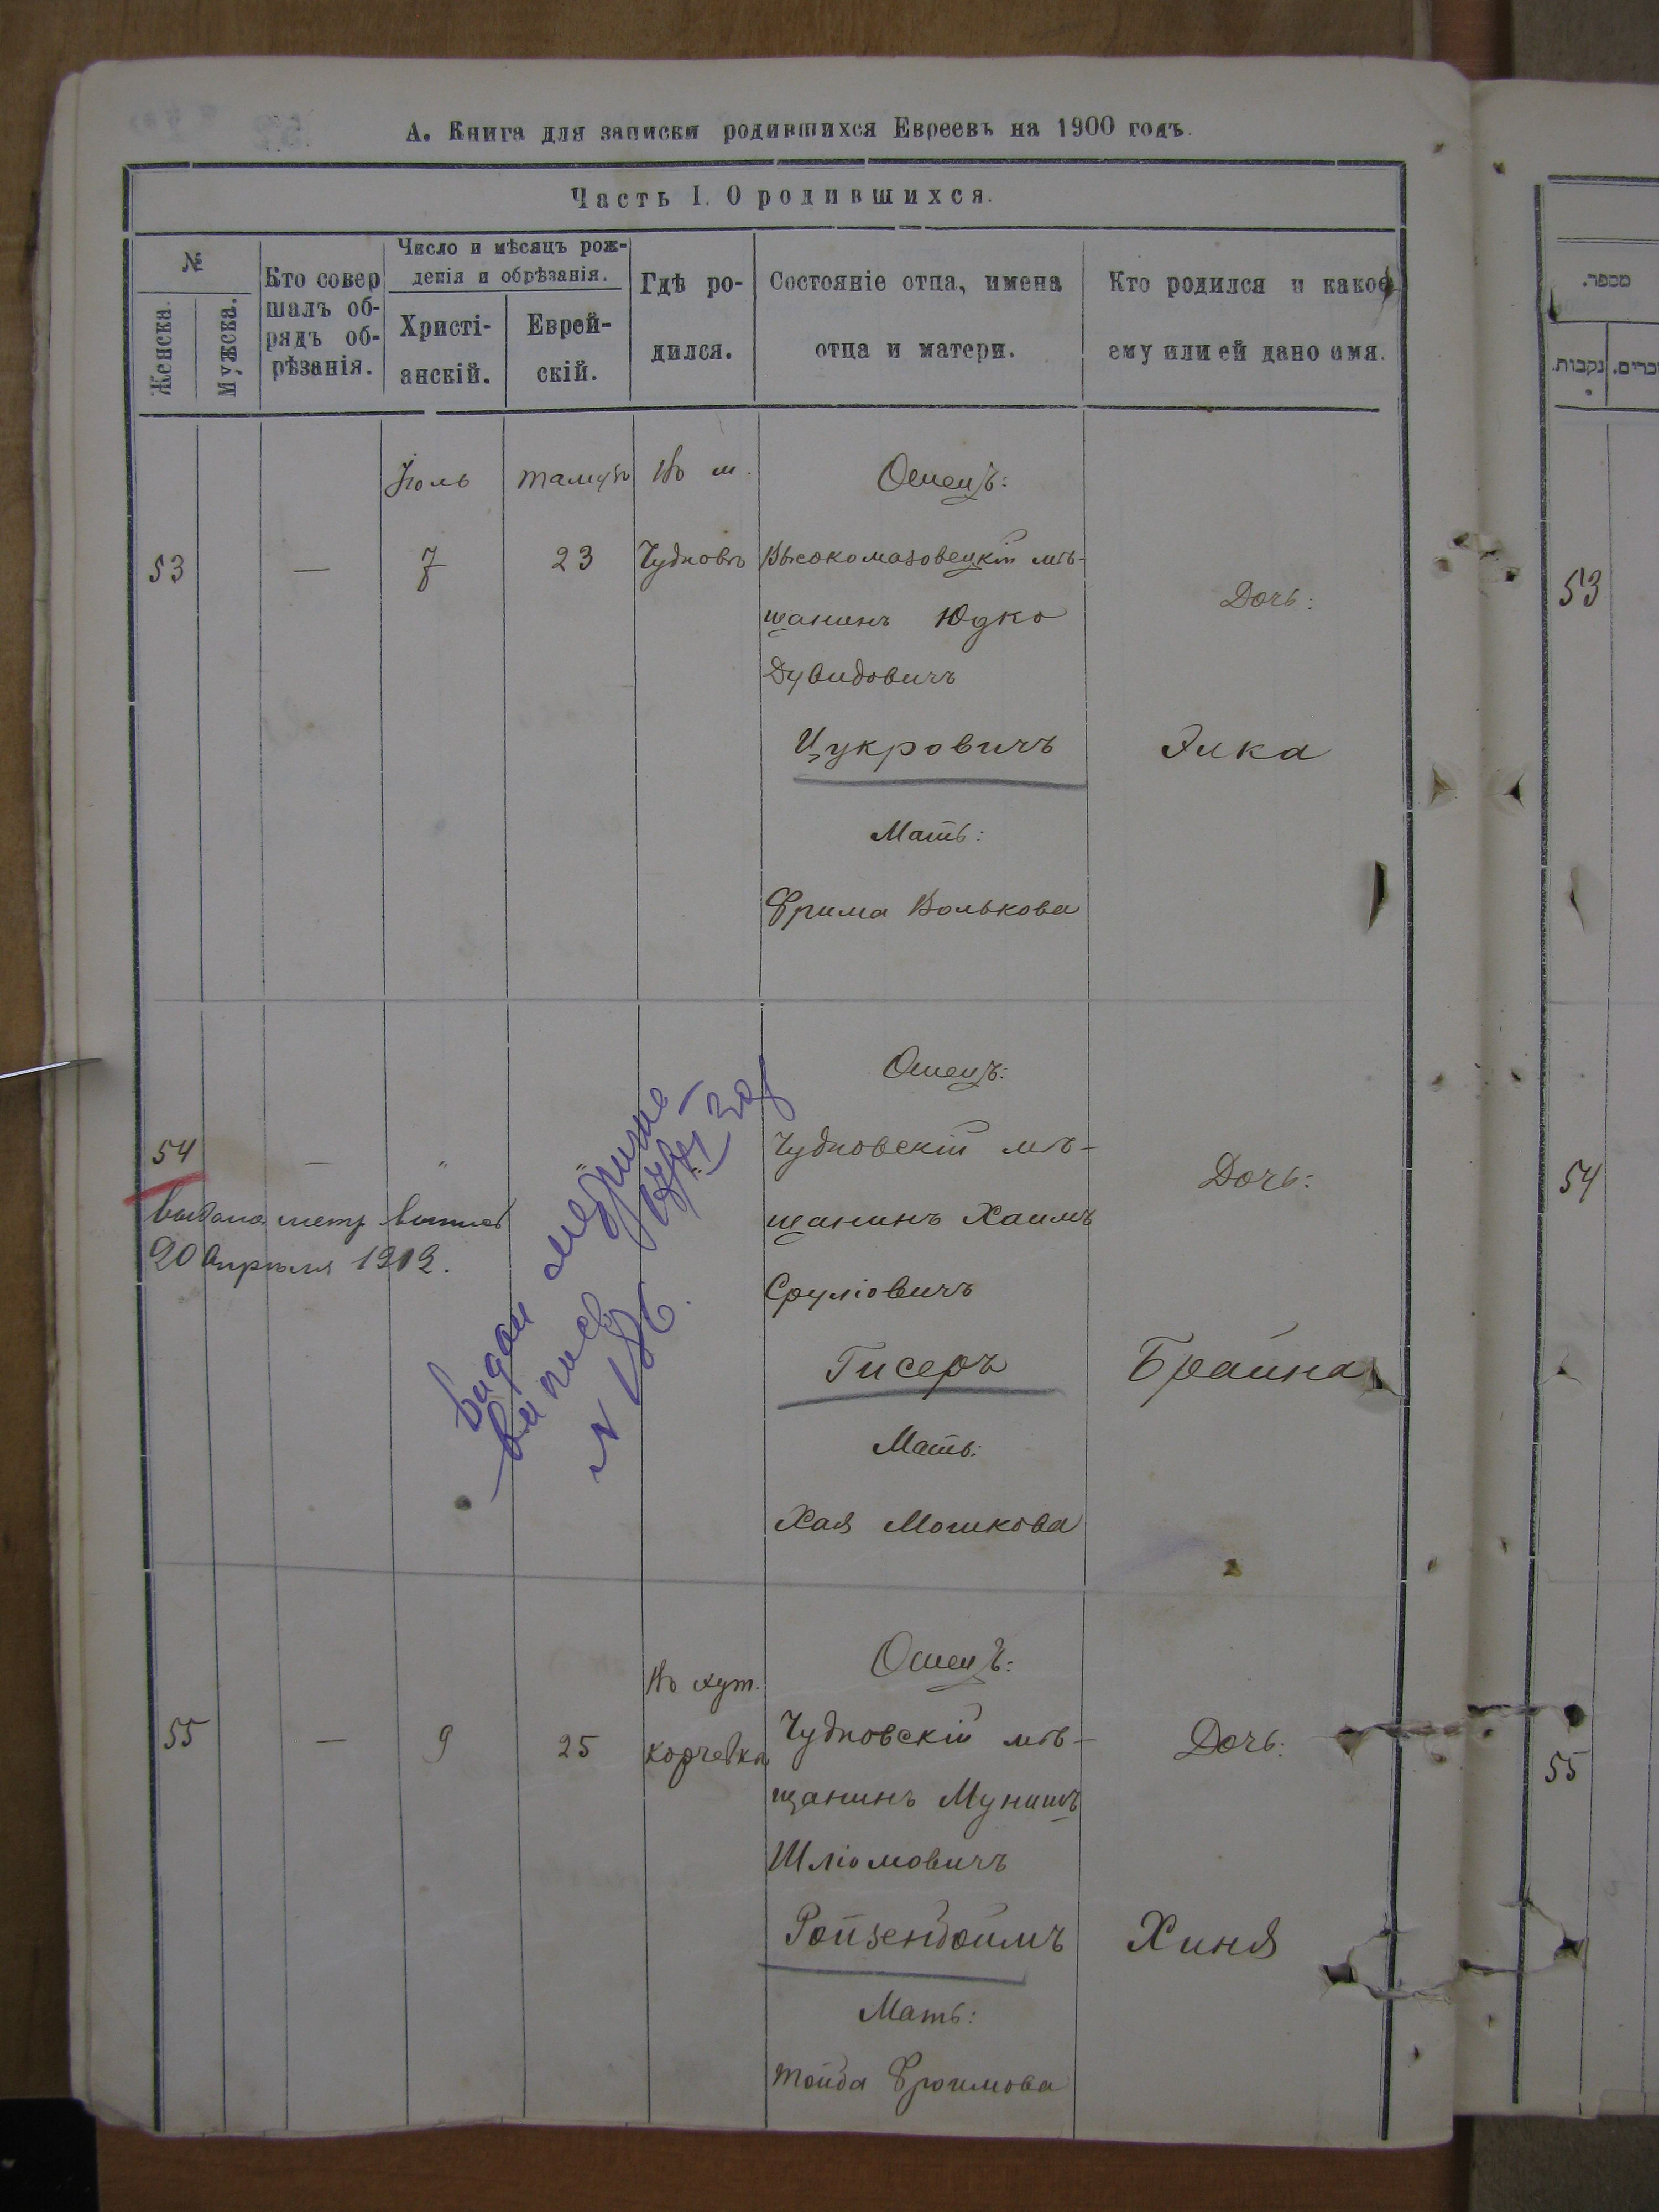 А. Книга для записки родившихся Евреевъ на 1900 годъ.
Часть I. О родившихся.
№
Женска.
Мужска.
Кто совер
шалъ об-
рядъ об-
рѣзанія.
Число и мѣсяцъ рож-
денія и обрѣзанія.
Христі-
анскій.
Еврей-
скій.
Гдѣ ро-
дился.
Состояніе отца, имена
отца и матери.
Кто родился и какое
ему или ей дано имя.
53
—
Іюль
7
Тамузъ
23
Въ м.
Чудновъ
Отецъ:
Высокомазовецкій мѣ-
щанинъ Юдко
Дувидовичъ
Цукровичъ
Мать:
Фрима Волькова
Дочь:
Элка
54
—
"
"
"
выдана метр выпись
20 Апрѣля 1912.
видан
випись
N 186
Отецъ:
Чудновскій мѣ-
щанинъ Хаимъ
Сруліовичъ
Гисеръ
Мать:
Хая Мошкова
Дочь:
Брайна
55
—
9
25
Въ хут.
Корчевка
Отецъ:
Чудновскій мѣ-
щанинъ Мунишъ
Шліомовичъ
Ройзенбоймъ
Мать:
Тойба Фроимова
Дочь:
Хиня
מספר.
נקבות.
זכרים.
53
54
55